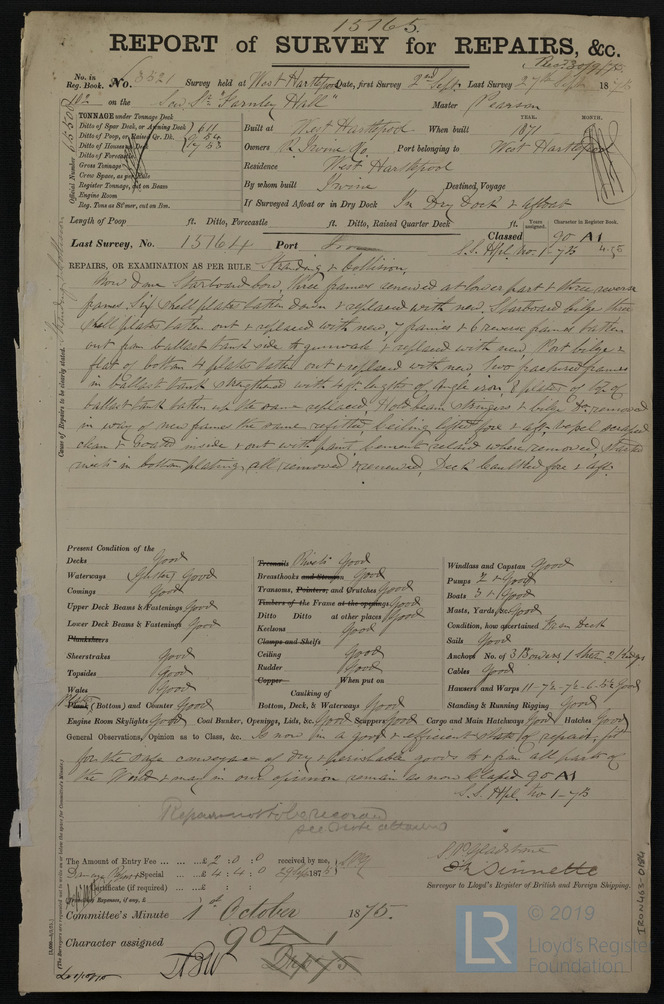 15165.
REPORT of SURVEY for REPAIRS, &c.
No. in Reg. Book. No. 8521 Survey held at West Hartlepool Date, first Survey 2nd Sept. Last Survey 27th Sept 1875
on the Scw Str "Farnley Hall" Master Pearson
TONNAGE under Tonnage Deck
Ditto of Spar Deck, or Awning Deck 611
Ditto of Poop, or Raised Qr. Dk.
Ditto of Houses on Deck
Ditto of Forecastle
Gross Tonnage
Crew Space, as per Rule
Register Tonnage, cut on Beam
Engine Room
Reg. Tons as St'mer, cut on Bm.
Official Number
YEAR. MONTH.
Built at West Hartlepool When built 1871
Owners R. Irvine & Co. Port belonging to West Hartlepool
Residence West Hartlepool
By whom built Irvine Destined Voyage
If Surveyed Afloat or in Dry Dock In Dry Dock & afloat
Length of Poop ft. Ditto, Forecastle ft. Ditto, Raised Quarter Deck ft.
Years assigned. Character in Register Book.
Last Survey, No. 15164 Port Classed 90 A1
S.S. Hpl. No 1-75
REPAIRS, OR EXAMINATION AS PER RULE Stranding & Collision.
Cause of Repairs to be clearly stated. Stranding & Collision
Now done Starboard bow, three frames renewed at lower part & three reverse
frames. Six shell plates taken down & replaced with new. Starboard bilge three
shell plates taken out & replaced with new, 7 frames & 6 reverse frames taken
out from ballast tank side to gunwale & replaced with new. Port bilge &
flat of bottom 4 plates taken out & replaced with new, two fractured frames
in ballast tank strengthened with 4 ft. lengths of angle iron, 8 plates of top of
ballast tank taken up the same replaced, Hold beam stringers & bilge removed
in way of new frames the same refitted, ceiling lifted fore & aft, vessel scraped
clean & coated inside & out with paint, cement relaid where removed, started
rivets in bottom plating all removed & renewed, Deck caulked fore & aft.
Present Condition of the
Decks Good
Waterways Good
Comings Good
Upper Deck Beams & Fastenings Good
Lower Deck Beams & Fastenings Good
Planksheers
Sheerstrakes Good
Topsides Good
Wales Good
Plank (Bottom) and Counter Good
Treenails Rivets Good
Breasthooks and Stemson Good
Transoms, Pointers, and Crutches Good
Timbers of the Frame at the openings Good
Ditto Ditto at other places Good
Keelsons Good
Clamps and Shelfs
Ceiling Good
Rudder Good
Copper When put on
Caulking of
Bottom, Deck, & Waterways Good
Windlass and Capstan Good
Pumps 2 & Good
Boats 3 & Good
Masts, Yards, &c. Good
Condition, how ascertained From Deck
Sails Good
Anchors No. of 3 Bowers, 1 Stream 2 Kedges
Cables Good
Hausers and Warps Good
Standing & Running Rigging Good
Engine Room Skylights Good Coal Bunker, Openings, Lids, &c. Good Scuppers Good Cargo and Main Hatchways Good Hatches Good
General Observations, Opinion as to Class, &c. Is now in a good & efficient state of repair, fit
for the safe conveyance of dry & perishable goods to & from all parts of
the World & may in our opinion remain as now Classed 90 A1
S.S. Hpl. No 1-75
Repairs not to be recorded
see note attached
The Amount of Entry Fee ... ... ... £ 2 : 0 : 0 received by me,
Special ... £ 4 : 4 : 0 29 Sep 1875
Certificate (if required) ... £ : :
Travelling Expenses, if any, £
Surveyor to Lloyd's Register of British and Foreign Shipping.
Committee's Minute 1st October 1875.
Character assigned 90 A1
(The Surveyors are requested not to write on or below the space for Committee's Minute.)
IRON463-0184
LR
© 2019
Lloyd's Register
Foundation